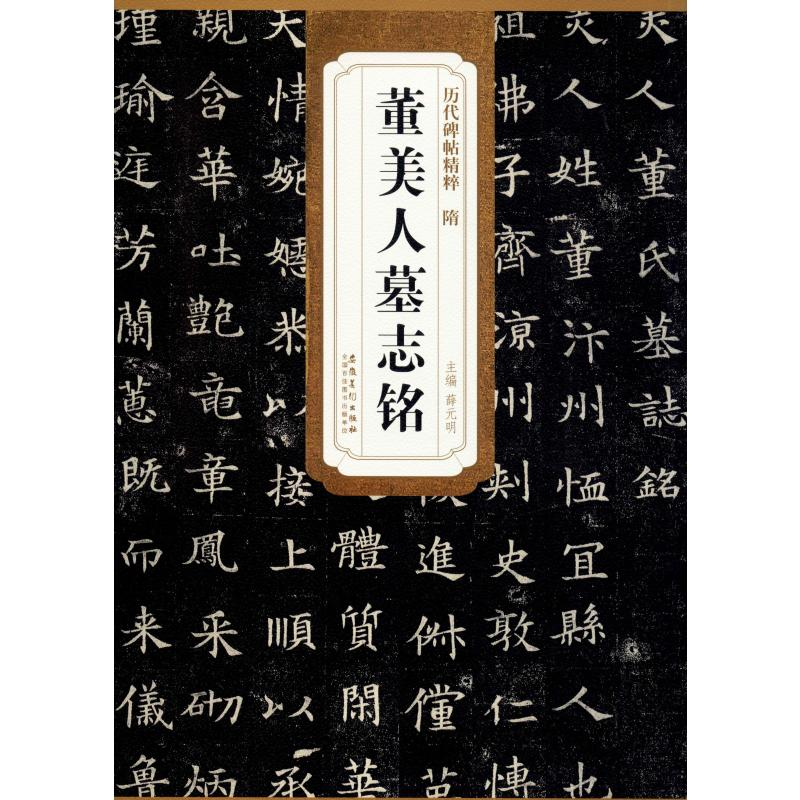 历代碑帖精粹 隋
董美人墓志铭
主编 薛元明
安徽美术出版社
全国百佳图书出版单位
美人董氏墓誌銘
美人姓董汴州恤冝縣人也
祖佛子齊涼州刾史敦仁博
進倜儻英
體質閑華
天情婉嫕恭
接上順以承
親含華吐艶竜章鳳采砌炳
瑾瑜庭芳蘭蕙既而来儀魯